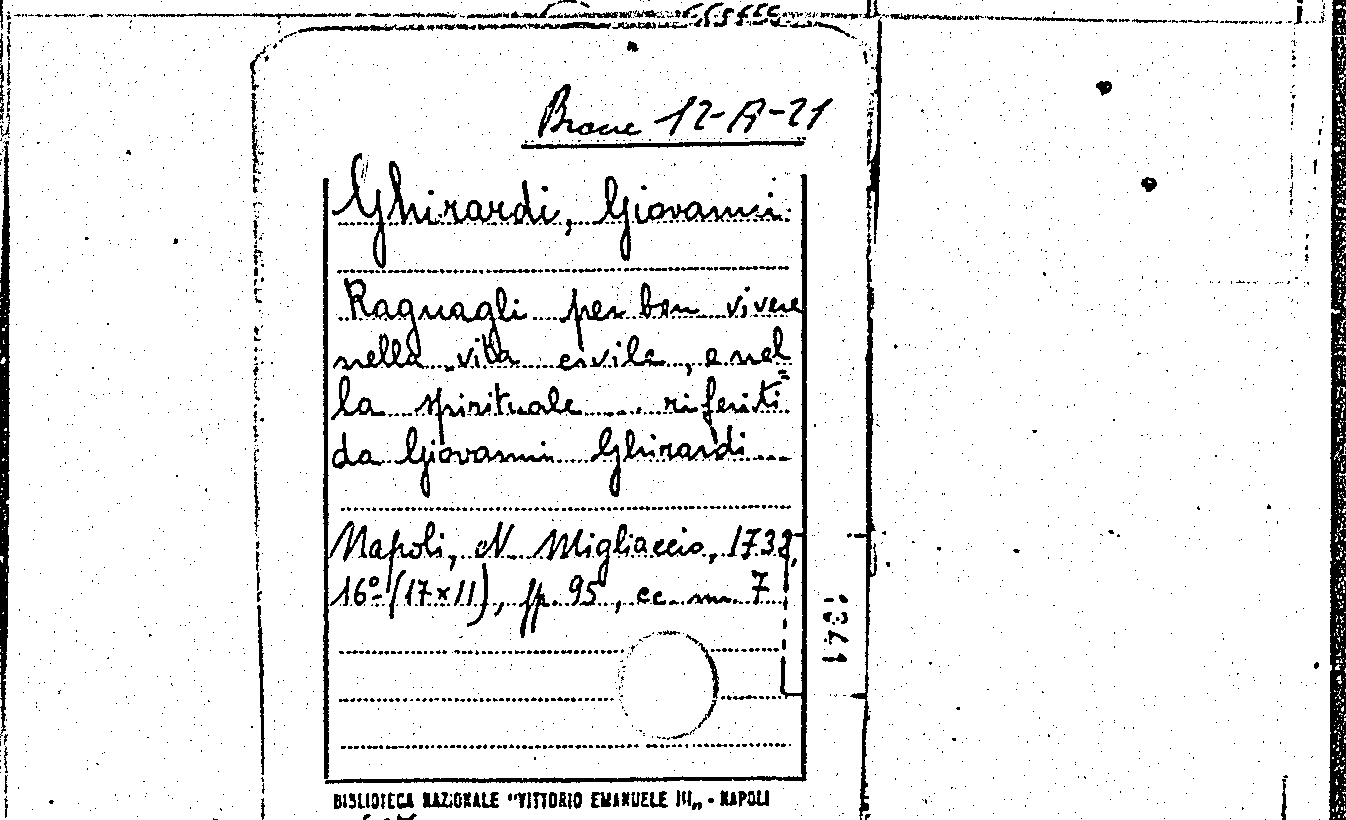 Branc 12-A-21
Ghirardi, Giovanni
Ragnagli per ben vivere
nella vita civile, e nel=
la spirituale ... riferiti
da Giovanni Ghirardi ...
Napoli, N. Migliaccio, 1738,
16º (17x11), pp. 95, cc. nn. 7
1341
BIBLIOTECA NAZIONALE "VITTORIO EMANUELE III„ - NAPOLI